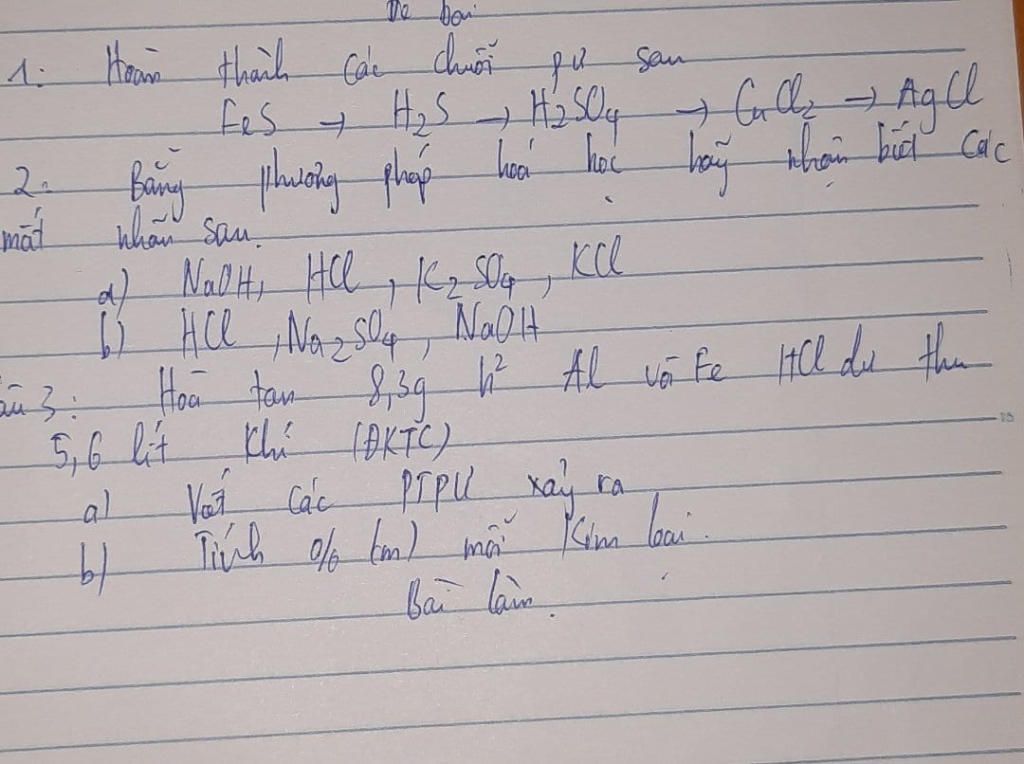 Đề bài
1. Hoàn thành các chuỗi pư sau
FeS → H2S → H2SO4 → CuCl2 → AgCl
2. Bằng phương pháp hoá học hãy nhận biết các
mất nhãn sau.
a) NaOH, HCl, K2SO4, KCl
b) HCl, Na2SO4, NaOH
âu 3: Hoà tan 8,3g h² Al và Fe HCl dư thu
5,6 lít khí (ĐKTC)
a) Viết các PTPƯ xảy ra
b) Tính % (m) mỗi kim loại.
Bài làm.